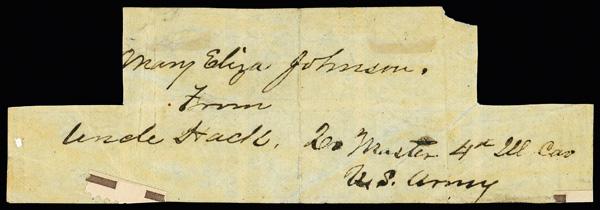 Mary Eliza Johnson.
From
Uncle Hack. Qr Master 4th Ill Cav
U.S. Army